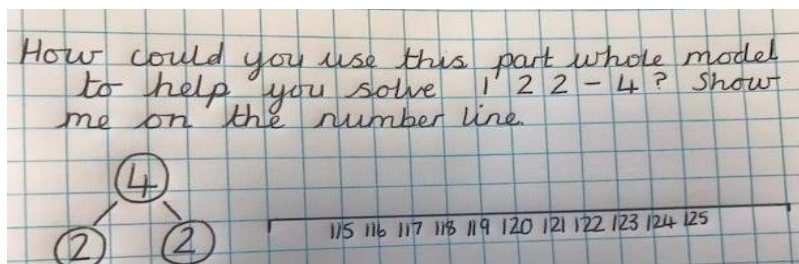 How could you use this part whole model
to help you solve 122 - 4? Show
me on the number line.
4
2 2
115 116 117 118 119 120 121 122 123 124 125